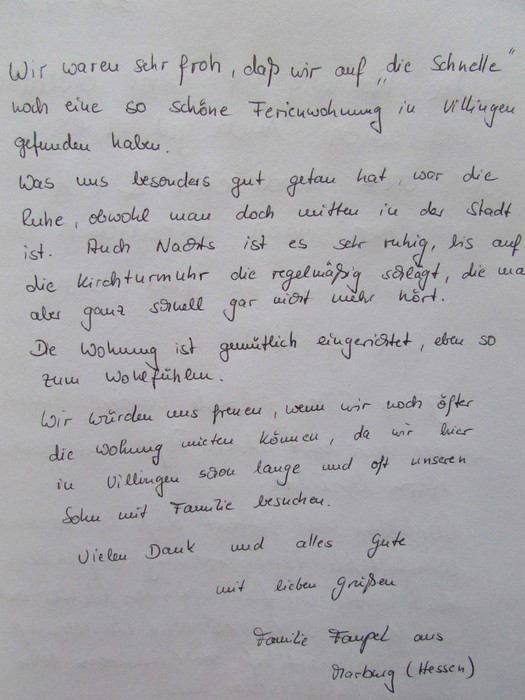 Wir waren sehr froh, daß wir auf „die Schnelle"
noch eine so schöne Ferienwohnung in Villingen
gefunden haben.
Was uns besonders gut getan hat, war die
Ruhe, obwohl man doch mitten in der Stadt
ist. Auch Nachts ist es sehr ruhig, bis auf
die Kirchturmuhr die regelmäßig schlägt, die ma
aber ganz schnell gar nicht mehr hört.
De Wohnung ist gemütlich eingerichtet, eben so
zum Wohlfühlen.
Wir würden uns freuen, wenn wir noch öfter
die Wohnung mieten können, da wir hier
in Villingen schon lange und oft unseren
Sohn mit Familie besuchen.
Vielen Dank und alles Gute
mit lieben Grüßen
Familie Faupel aus
Marburg (Hessen)